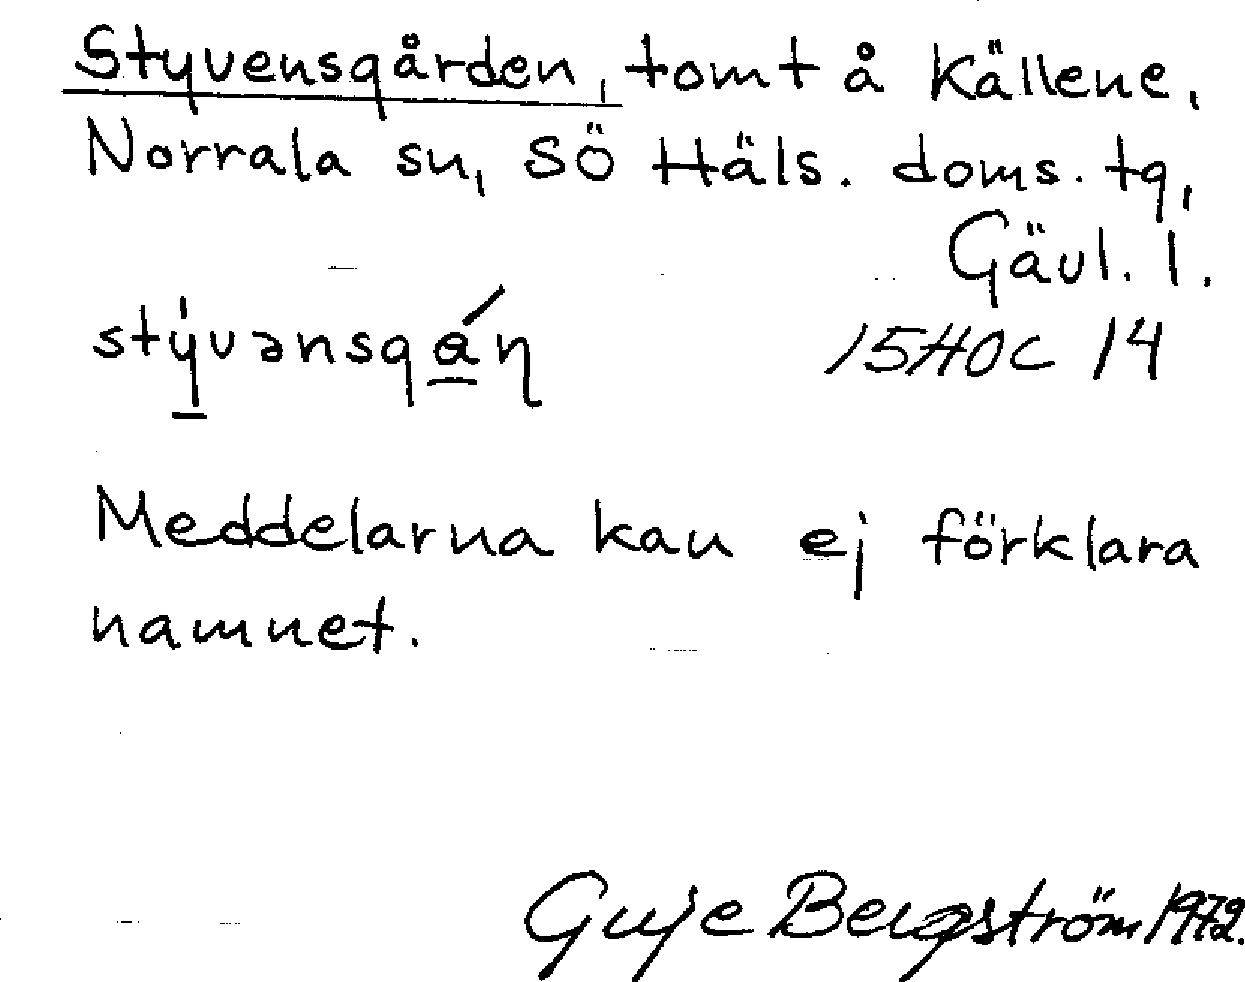 Styvensgården, tomt å Källene,
Norrala sn, Sö Häls. doms. tg,
Gävl. l.
stývənsgá̱ṇ 15H0C 14
Meddelarna kan ej förklara
namnet.
Guje Bergström 1972.